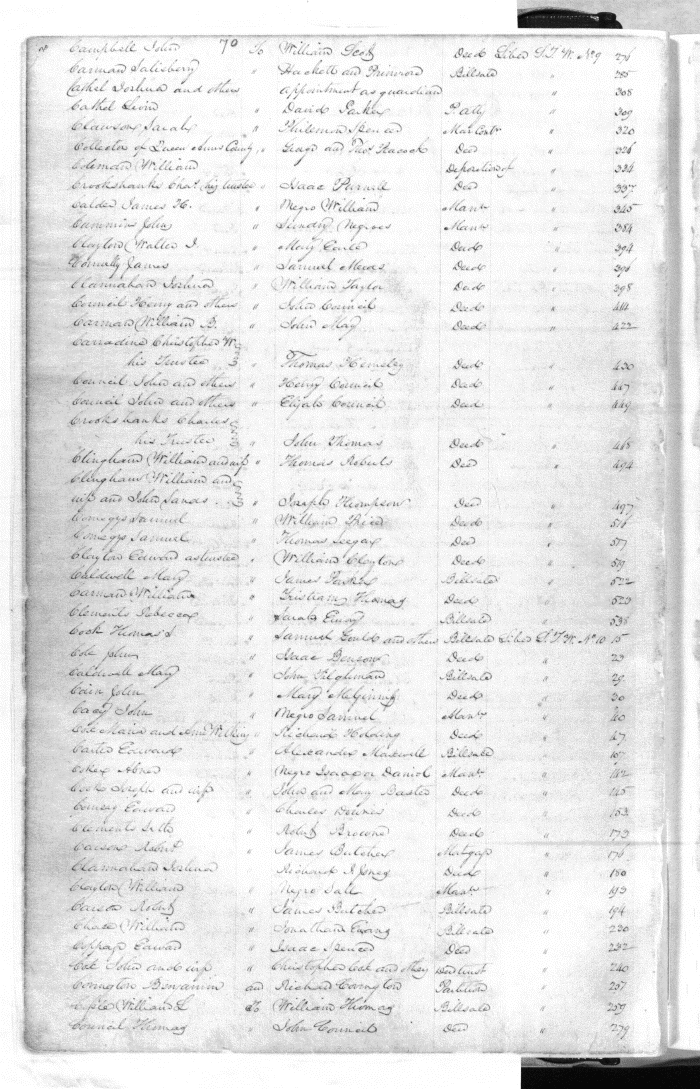 Campbell John 70 To William Scott Deed Liber S.T.W. No 9 276
Carman Salisbury " Hackett and Deed Billsale " 285
Cathel Joshua and others appointment as guardian " 308
Cathel Levin " David Parker " 309
Clawson Sarah " Philemon Spencer Man Cont " 320
Collector of Queen Anns County " George and Thos Peacock Deed " 326
Coleman William Deposition of " 334
Crookshanks Chas. his trustee " Isaac Purnell Deed " 337
Calder James H. " Negro William Manr " 345
Cummins John " Sundry Negroes Manr " 384
Clayton Walter J. " Mary Earle Deed " 394
Connolly James " Samuel Meeds Deed " 396
Clannahan Joshua " William Taylor Deed " 398
Council Henry and others " John Council Deed " 414
Carman William B. " John May Deed " 422
Carradine Christopher W.
his Trustee " Thomas Hemsley Deed " 430
Council John and others " Henry Council Deed " 447
Council John and others " Elijah Council Deed " 449
Crookshanks Charles
his Trustee " John Thomas Deed " 468
Clingham William and wife " Thomas Roberts Deed " 494
Clingham William and
wife and John Sands " Joseph Thompson Deed " 497
Comegys Samuel " William Deed " 516
Comegys Samuel " Thomas Seegar Deed " 517
Clayton Edward as trustee " William Clayton Deed " 519
Caldwell Mary " James Parker Billsale " 522
Carman William " Tristram Thomas Deed " 523
Clements Rebecca " Sarah Emory Billsale " 538
Cook Thomas S " Samuel and others Billsale Liber S.T.W. No 10 15
Cole John " Isaac Benson Deed " 23
Caldwell Mary " John Tilghman Billsale " 29
Cain John " Mary McGinnis Deed " 30
Cacy John " Negro Samuel Manr " 40
Cox Maria and Ann Wilkins " Richard Holding Deed " 47
Carter Edward " Alexander Maxwell Billsale " 107
Coker Abner " Negro Isaac or Daniel Manr " 142
Cook Joseph and wife " John and Mary Baxter Deed " 145
Edward " Charles Downes Deed " 153
Clements Seth " Robert Browne Deed " 173
Carson Robert " James Butcher Mortgage " 176
Clannahan Joshua Richard I Jones Deed " 180
Clayton William " Negro Manr " 193
Carson Robert " James Butcher Billsale " 194
Chase William " Jonathan Evans Billsale " 220
Coppage Edward " Isaac Spencer Deed " 232
Cox John and wife " Christopher Cox and others Deed trust " 240
Covington Benjamin and Richard Covington Partition " 257
William L To William Thomas Billsale " 259
Council Thomas " John Council Deed " 279